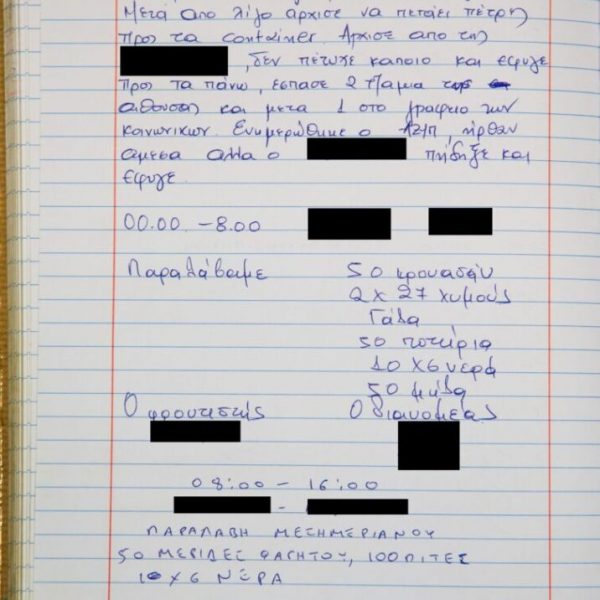 Μετά απο λίγο άρχισε να πετάει πέτρες
προς τα container. Αρχισε απο της
, δεν πέτυχε καποιο και έφυγε
προς τα πάνω, έσπασε 2 τζαμια της
αιθουσας και μετα 1 στο γραφειο των
κοινωνικων. Ενημερώθηκε ο Α2/Π, ήρθαν
αμεσα αλλα ο πήδηξε και
έφυγε.
00.00. – 8.00
Παραλάβαμε 50 κρουασάν
2 x 27 χυμούς
Γάλα
50 ποτήρια
10 x 6 νερά
50 μήλα
Ο φροντιστής Ο διανομέας
08:00 – 16:00
-
ΠΑΡΑΛΑΒΗ ΜΕΣΗΜΕΡΙΑΝΟΥ
50 ΜΕΡΙΔΕΣ ΦΑΓΗΤΟΥ, 100 ΠΙΤΕΣ
10 x 6 ΝΕΡΑ